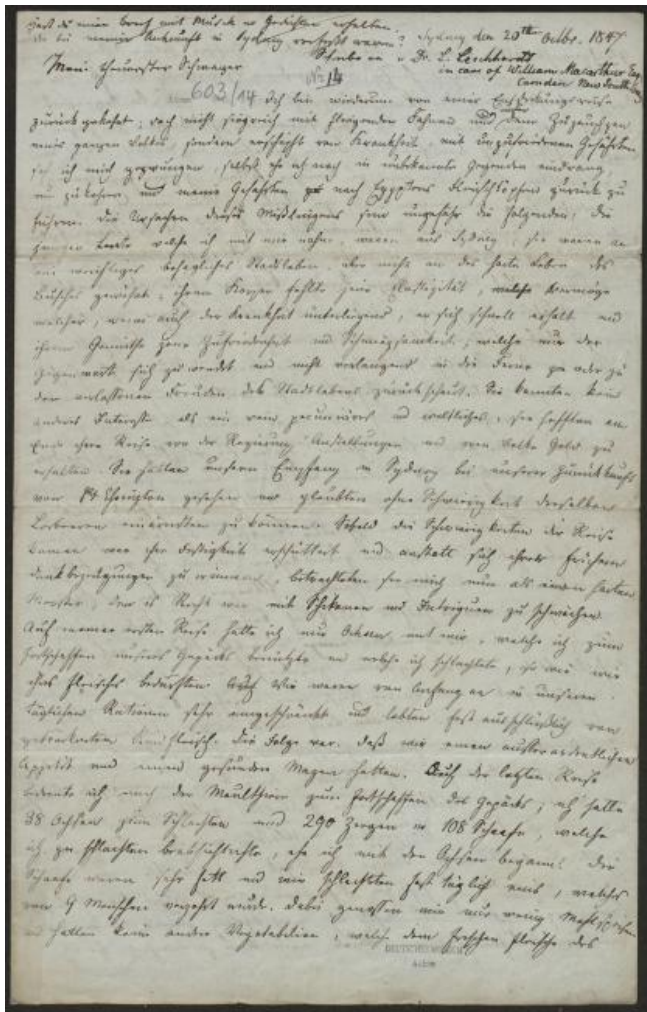 Hast du meinen Brief mit Musik u Gedichten erhalten,
die bei meiner Ankunft in Sydney verfasst waren? Sydney den 20th Octbr. 1847
Schreibe an Dr. L. Leichhardt
Mein theuerster Schwager
in care of William Macarthur Esq
No 14
Camden New South
603/14 Ich bin wiederum von einer Entdeckungsreise
zurückgekehrt; doch nicht siegreich mit fliegenden Fahnen und dem Zujauchzen
eines ganzen Volkes, sondern erschöpft von Krankheit, mit unzufriedenen Gefährten
sah ich mich gezwungen, selbst ehe ich noch in unbekannte Gegenden eindrang
umzukehren, und meine Gefährten nach Egyptens Fleischtöpfen zurück zu
führen. Die Ursachen dieses Mißlingens sind ungefähr die folgenden: die
jungen Leute welche ich mit mir nahm, waren aus Sydney, sie waren an
ein behagliches Stadtleben, aber nicht an das harte Leben des
Busches gewöhnt; ihrem Körper fehlte jene Elastizität, vermöge
welcher, wenn auch der Krankheit unterliegend, er sich schnell erholt und
ihrem Gemüthe jene Zufriedenheit und Schweigsamkeit, welche nur der
Gegenwart sich zuwendet und nicht verlangend in die Ferne oder zu
den verlassenen Freuden des Stadtlebens zurückschaut. Sie kannten kein
anderes Interesse als ein rein pecuniäres und weltliches, sie hofften am
Ende ihrer Reise von der Regierung Anstellungen und vom Volke Geld zu
erhalten. Sie hatten unsern Empfang in Sydney bei unserer Zurückkunft
von Pt Essington gesehen und glaubten ohne Schwierigkeit dieselben
Lorbeeren einernten zu können. Sobald die Schwierigkeiten der Reise
kamen war ihre Festigkeit erschüttert und anstatt sich ihrer frühern
zu erinnern, betrachteten sie mich nun als einen harten
Meister, dem es Recht war mit Schikanen und Intriguen zu schwächen.
Auf meiner ersten Reise hatte ich nur Ochsen mit mir, welche ich zum
Fortschaffen unseres Gepäcks benutzte und welche ich schlachtete, so wie wir
des Fleisches bedurften. Wir waren von Anfang an in unseren
täglichen Rationen sehr eingeschränkt und lebten fast ausschließlich von
getrocknetem Rindfleisch. Die Folge war, daß wir einen außerordentlichen
Appetit und einen gesunden Magen hatten. Auf der letzten Reise
bediente ich mich der Maulthiere zum Fortschaffen des Gepäcks; ich hatte
38 Ochsen zum Schlachten und 290 Ziegen u 108 Schaafe, welche
ich zu schlachten beabsichtigte, ehe ich mit den Ochsen begann. Die
Schaafe waren sehr fett und wir schlachteten fast täglich eins, welches
von 9 Menschen verzehrt wurde. Dabei genossen wir nur wenig
und hatten keine andre Vegetabilien, welche dem frischen Fleische des